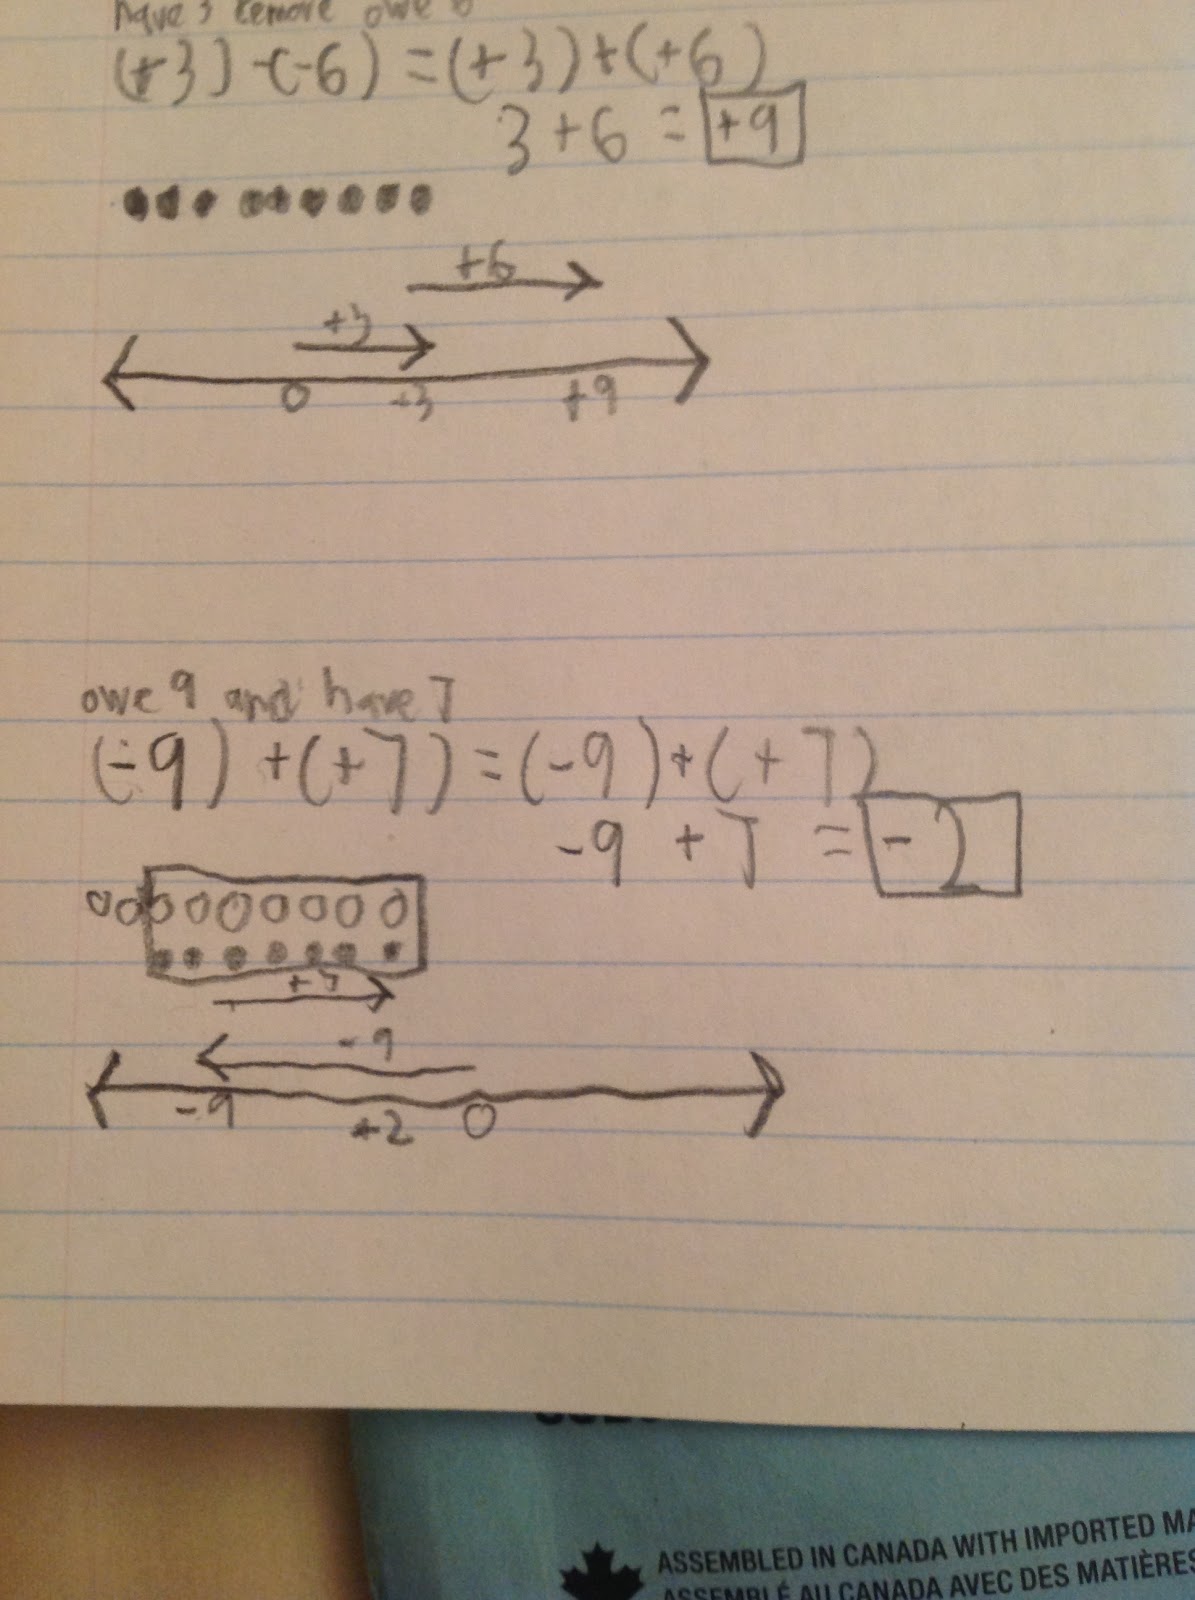 have 3 remove owe 6
(+3) -(-6) = (+3)+(+6)
3 + 6 = +9
+6
+3
0 +3 +9
owe 9 and have 7
(-9) +(+7) = (-9)+(+7)
-9 + 7 = -2
+7
-9
-9 +2 0
ASSEMBLED IN CANADA WITH IMPORTED
ASSEMBLÉ AU CANADA AVEC DES MATIÈRES